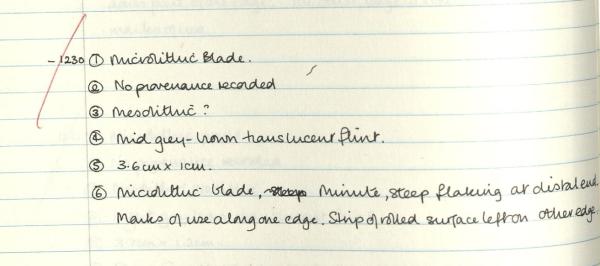 -1230 ① Microlithic Blade.
② No provenance recorded
③ Mesolithic?
④ Mid grey-brown translucent flint.
⑤ 3.6cm x 1cm.
⑥ Microlithic blade, Minute, steep flaking at distal end.
Marks of use along one edge. Strip of rolled surface left on other edge.